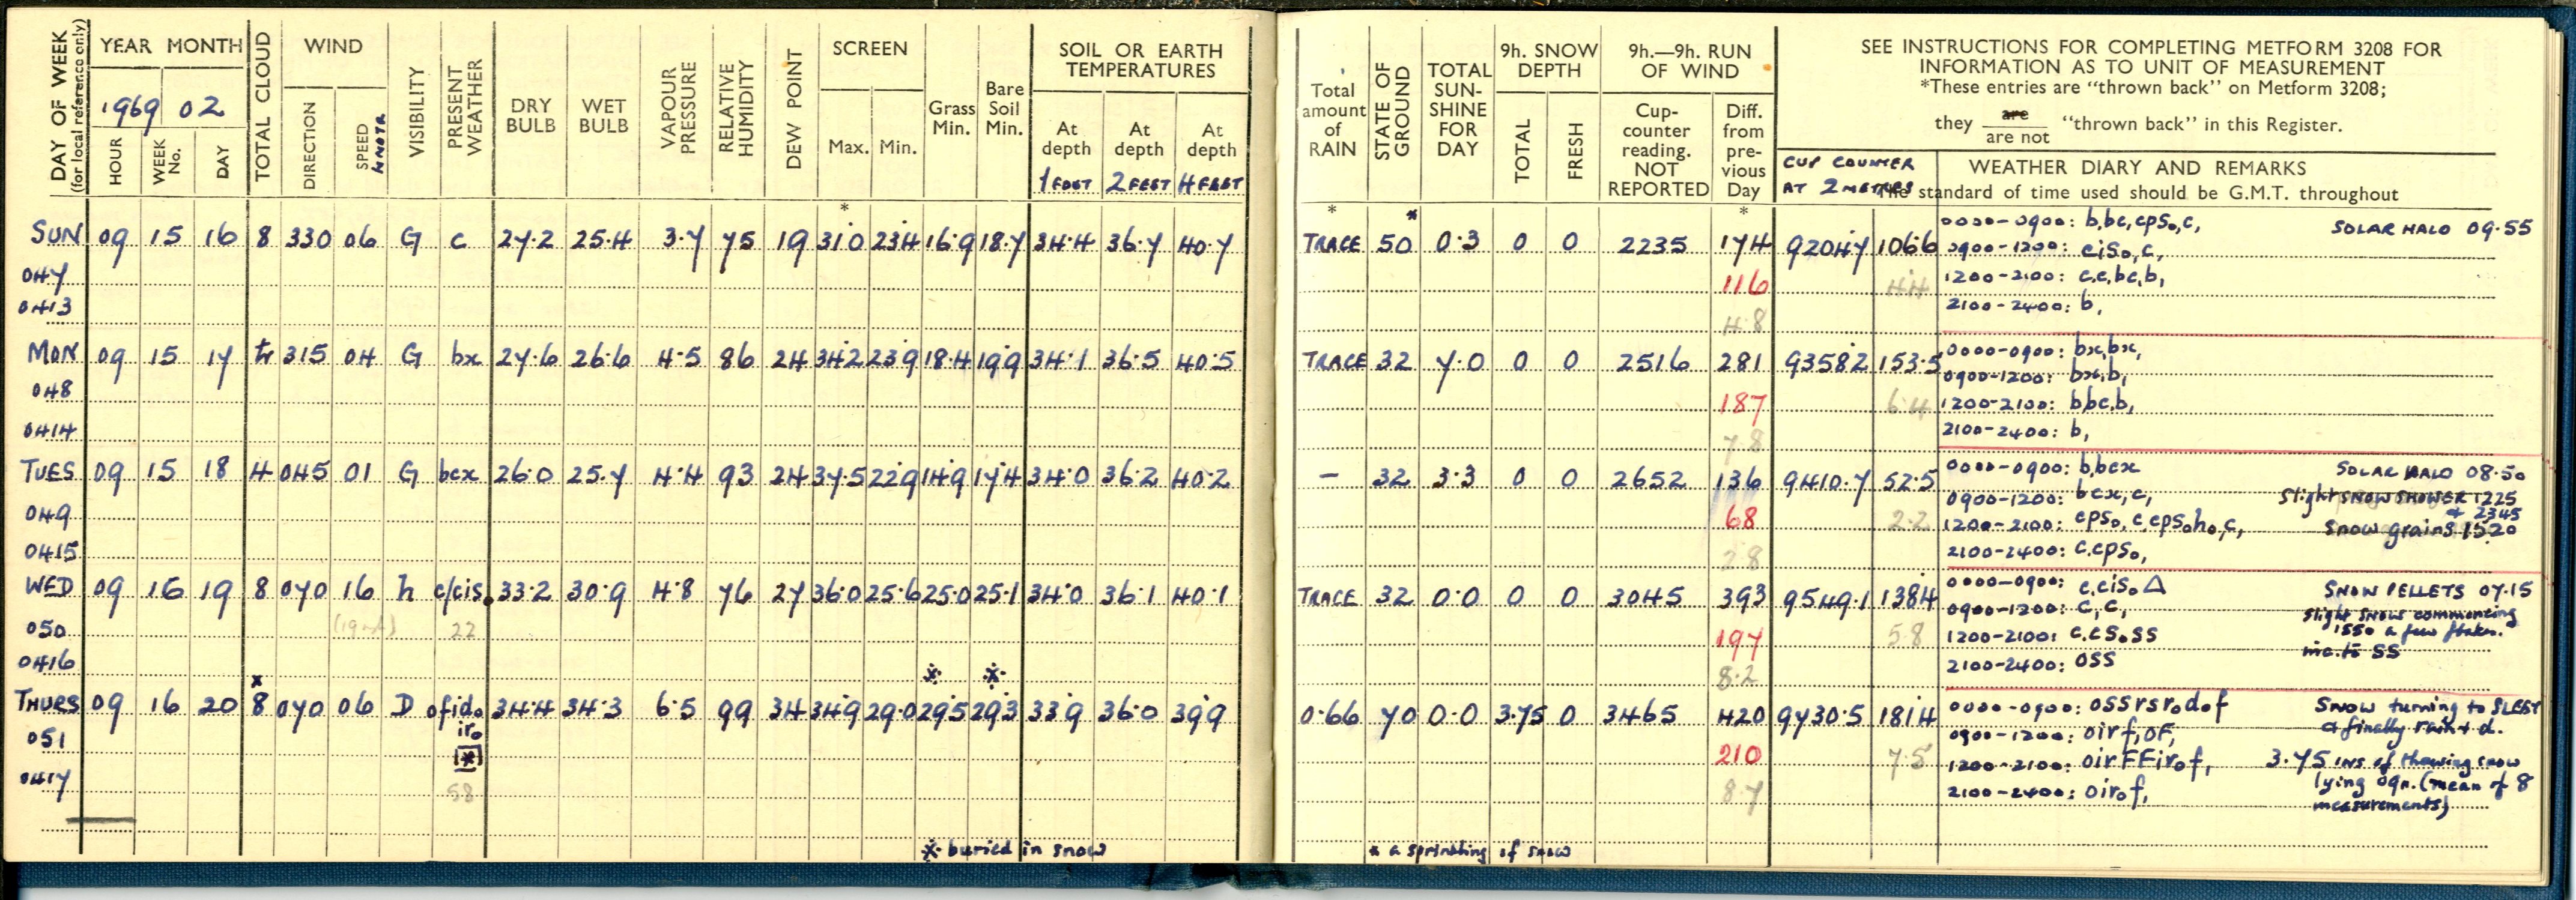 DAY OF WEEK
(for local reference only)
YEAR MONTH
1969 02
HOUR
WEEK No.
DAY
TOTAL CLOUD
WIND
DIRECTION
SPEED KNOTS
VISIBILITY
PRESENT WEATHER
DRY BULB
WET BULB
VAPOUR PRESSURE
RELATIVE HUMIDITY
DEW POINT
SCREEN
Max. Min.
Grass Min.
Bare Soil Min.
SOIL OR EARTH TEMPERATURES
At depth 1 FOOT
At depth 2 FEET
At depth 4 FEET
Total amount of RAIN
STATE OF GROUND
TOTAL SUN-SHINE FOR DAY
9h. SNOW DEPTH
TOTAL
FRESH
9h.—9h. RUN OF WIND
Cup-counter reading. NOT REPORTED
Diff. from pre-vious Day
SEE INSTRUCTIONS FOR COMPLETING METFORM 3208 FOR
INFORMATION AS TO UNIT OF MEASUREMENT
*These entries are "thrown back" on Metform 3208;
they are / are not "thrown back" in this Register.
CUP COUNTER
AT 2 METRES
WEATHER DIARY AND REMARKS
The standard of time used should be G.M.T. throughout
* * * *
SUN 09 15 16 8 330 06 G c 27.2 25.4 3.7 75 19 31.0 23.4 16.9 18.7 34.4 36.7 40.7 TRACE 50 0.3 0 0 2235 174 9204.7 106.6
0000-0900: b,bc,cpS₀,c, SOLAR HALO 09.55
0900-1200: ciS₀,c,
047 116 4.4 1200-2100: c,c,bc,b,
0413 4.8 2100-2400: b,
MON 09 15 17 tr 315 04 G bx 27.6 26.6 4.5 86 24 34.2 23.9 18.4 19.9 34.1 36.5 40.5 TRACE 32 7.0 0 0 2516 281 9358.2 153.5
0000-0900: bx,bx,
0900-1200: bx,b,
048 187 6.4 1200-2100: bbc,b,
0414 7.8 2100-2400: b,
TUES 09 15 18 4 045 01 G bcx 26.0 25.7 4.4 93 24 37.5 22.9 14.9 17.4 34.0 36.2 40.2 – 32 3.3 0 0 2652 136 9410.7 52.5
0000-0900: b,bcx SOLAR HALO 08.50
0900-1200: bcx,c, Slight SNOW SHOWER 1225
+ 2345
049 68 2.2 1200-2100: cpS₀,c,cpS₀h₀,c, Snow grains 1520
0415 2.8 2100-2400: c,cpS₀,
WED 09 16 19 8 070 16 h c/cis₀ 33.2 30.9 4.8 76 27 36.0 25.6 25.0 25.1 34.0 36.1 40.1 TRACE 32 0.0 0 0 3045 393 9549.1 138.4
0000-0900: c,ciS₀ △ SNOW PELLETS 07.15
0900-1200: c,c, Slight SNOW commencing
1550 a few flakes.
050 22 197 5.8 1200-2100: c,cS₀SS
inc. to SS
0416 8.2 2100-2400: OSS
* * *
THURS 09 16 20 8 070 06 D ofid₀ 34.4 34.3 6.5 99 34 34.9 29.0 29.5 29.3 33.9 36.0 39.9 0.66 70 0.0 3.75 0 3465 420 9730.5 181.4
ir₀
[*]
0000-0900: OSSrsr₀d₀f SNOW turning to SLEET
& finally rain + d.
0900-1200: oirf,OF,
051 210 7.5 1200-2100: oirFFir₀f, 3.75 ins of thawing snow
lying 09h. (mean of 8
measurements)
0417 58 8.7 2100-2400: oir₀f,
* buried in snow
* a sprinkling of snow